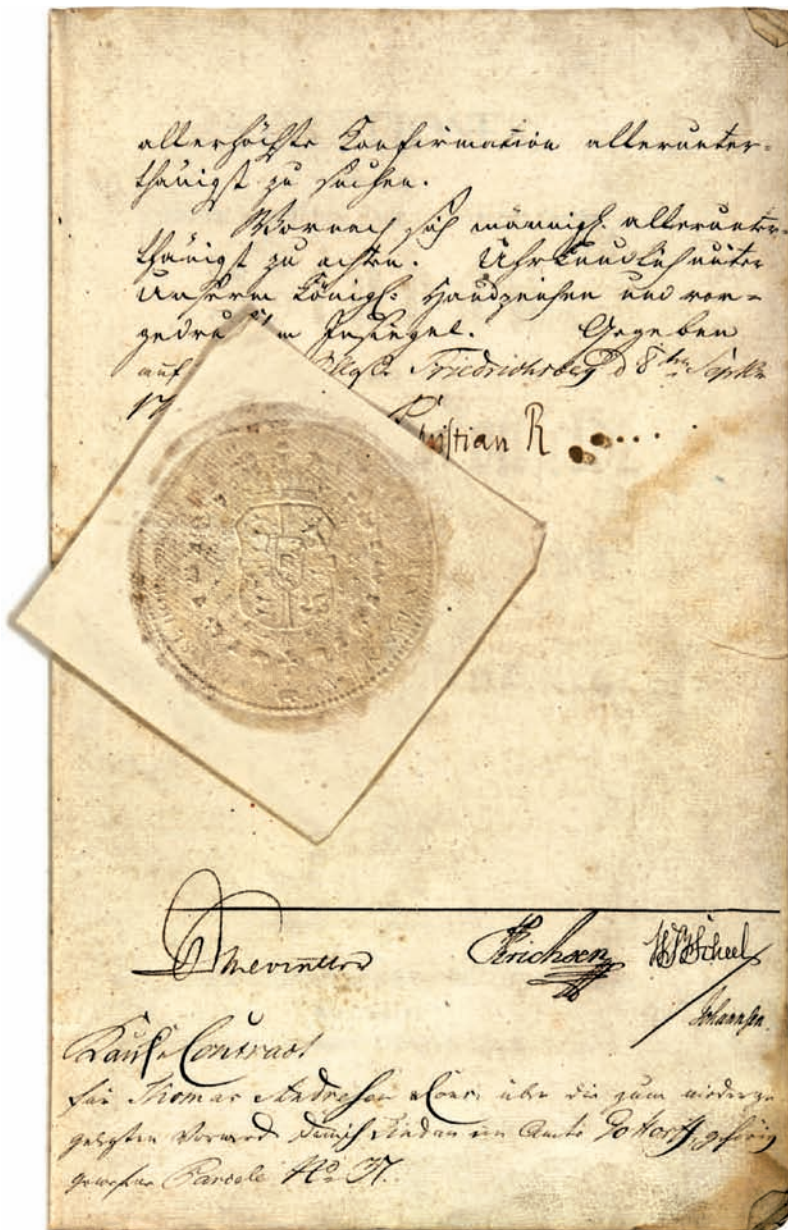 allerhöchste Confirmation allerunter-
thänigst zu suchen.
Wornach sich männigl. allerunter-
thänigst zu achten. Uhrkundlich unter
Unserm Königl: Handzeichen und vor-
gedru m Insiegel. Gegeben
auf Friedrichsberg d 8ten Septbr
17
Christian R
Erichsen WSScheel
Johannsen.
Kauf-Contract
für Thomas Andresen über die zum niederge
gelegten Vorwerk Dännisch Lindau im Amte Gottorff gehörig
gewesene Parcele No